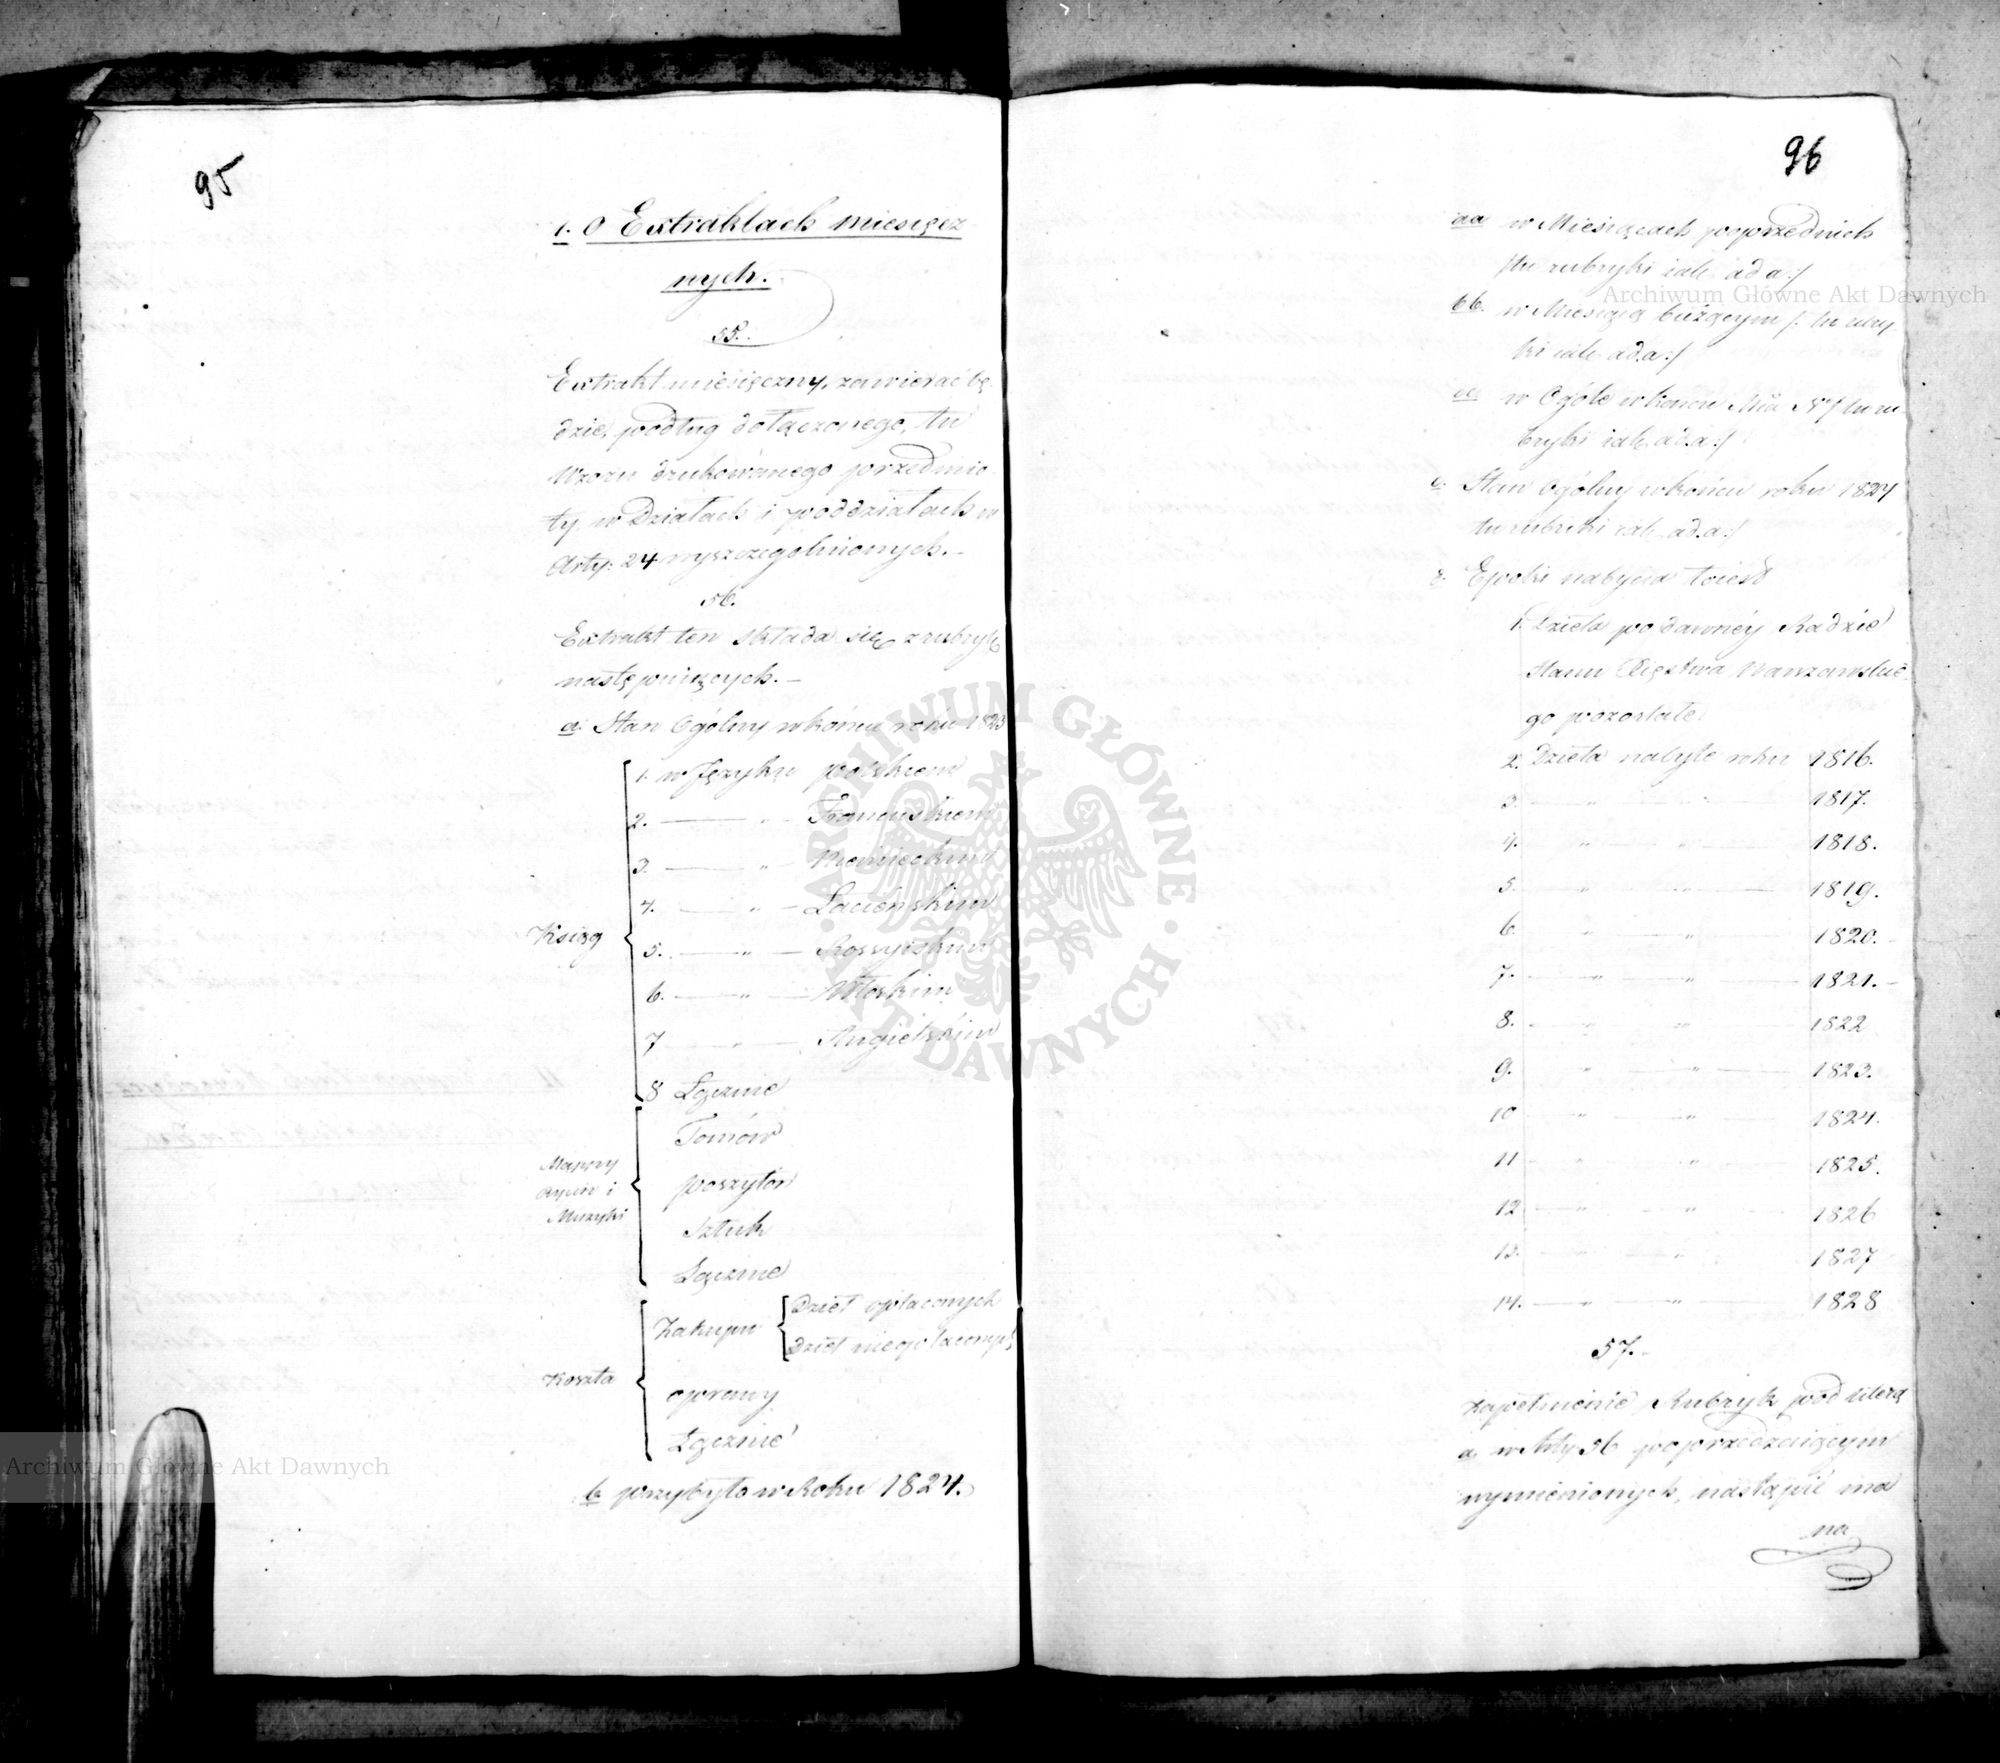 95
1. O Extraktach miesięcz-
nych.
55.
Extrakt miesięczny, zawierać bę-
dzie, podług dołączonego, tu
Wzoru drukowanego przedmio-
ty, w Działach i poddziałach w
Arty: 24 wyszczególnionych. -
56.
Extrakt ten składa się z rubryk
następuiących. -
a. Stan Ogólny w końcu roku 1823
Ksiąg
1. w Języku polskiem
2. — " — Francuskiem
3. — " — Niemieckim
4. — " — Łacińskim
5. — " — Rossyiskim
6. — " — Włoskim
7 — " — Angielskim
8 Łącznie
Mappy
Rycin i
Muzyki
Tomów
poszytów
Sztuk
Łącznie
Koszta
Zakupu
Dzieł opłaconych
Dzieł nieopłaconych
oprawy
Łącznie
b. przybyło w Roku 1824.
96
aa w Miesiącach poprzednich
/:tu rubryki iak ad a:/
bb. w Miesiącu bieżącym /: tu rubry-
ki iak ad a:/
cc. w Ogóle w końcu Mca N /:tu ru-
bryki iak ad a:/
c. Stan Ogólny w końcu roku 1824
tu rubriki iak ad a:/
Epoki nabycia toiest
1. Dzieła po dawnéy Radzie
Stanu Xięstwa Warszawskie-
go pozostałe
2. Dzieła nabyte roku 1816.
3. — " — " — 1817.
4. — " — " — 1818.
5. — " — " — 1819.
6. — " — " — 1820. -
7. — " — " — 1821. -
8. — " — " — 1822
9. — " — " — 1823.
10 — " — " — 1824.
11 — " — " — 1825.
12 — " — " — 1826
13. — " — " — 1827
14. — " — " — 1828
57. -
Zapełnienie Rubryk pod literą
a. w Arty 56 poprzedzaiącym
wymienionych, nastąpić ma
na
Archiwum Główne Akt Dawnych
Archiwum Główne Akt Dawnych
ARCHIWUM GŁÓWNE AKT DAWNYCH